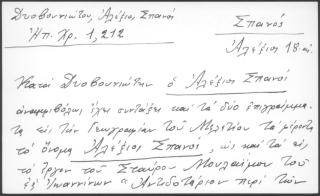 Δυοβουνιώτου, Ἀλέξιος Σπανός
Ἠπ. Χρ. 1, 212
Σπανός
Ἀλέξιος 18 αἰ.
Κατὰ Δυοβουνιώτην ὁ Ἀλέξιος Σπανός
ἀναμφιβόλως ἔχει συντάξει καὶ τὰ δύο ἐπιγράμμα
τα εἰς τὴν Γεωγραφίαν τοῦ Μελετίου τὰ φέροντα
τὸ ὄνομα Ἀλέξιος Σπανός, ὡς καὶ τὰ εἰς
τὸ ἔργον τοῦ Σταύρου
ἐξ Ἰωαννίνων "Ἀντιδοτάριον περὶ τῶν